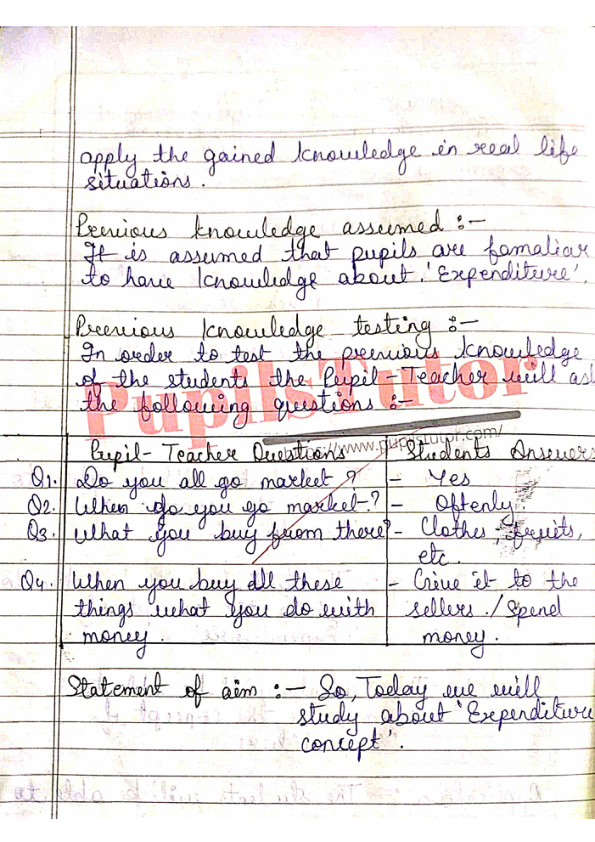 apply the gained knowledge in real life
situations.
Previous knowledge assumed :-
It is assumed that pupils are famaliar
to have knowledge about 'Expenditure'.
Previous knowledge testing :-
In order to test the previous knowledge
of the students the Pupil-Teacher will ask
the following questions :-
PupilsTutor
https://www.pupilstutor.com/
Pupil-Teacher Questions Students Answers
Q1. Do you all go market ? - Yes
Q2. When do you go market-? - Oftenly
Q3. What you buy from there? - Clothes, fruits,
etc.
Q4. When you buy all these - Give it to the
things what you do with sellers./Spend
money. money.
Statement of aim :- So, Today we will
study about 'Expenditure
concept'.